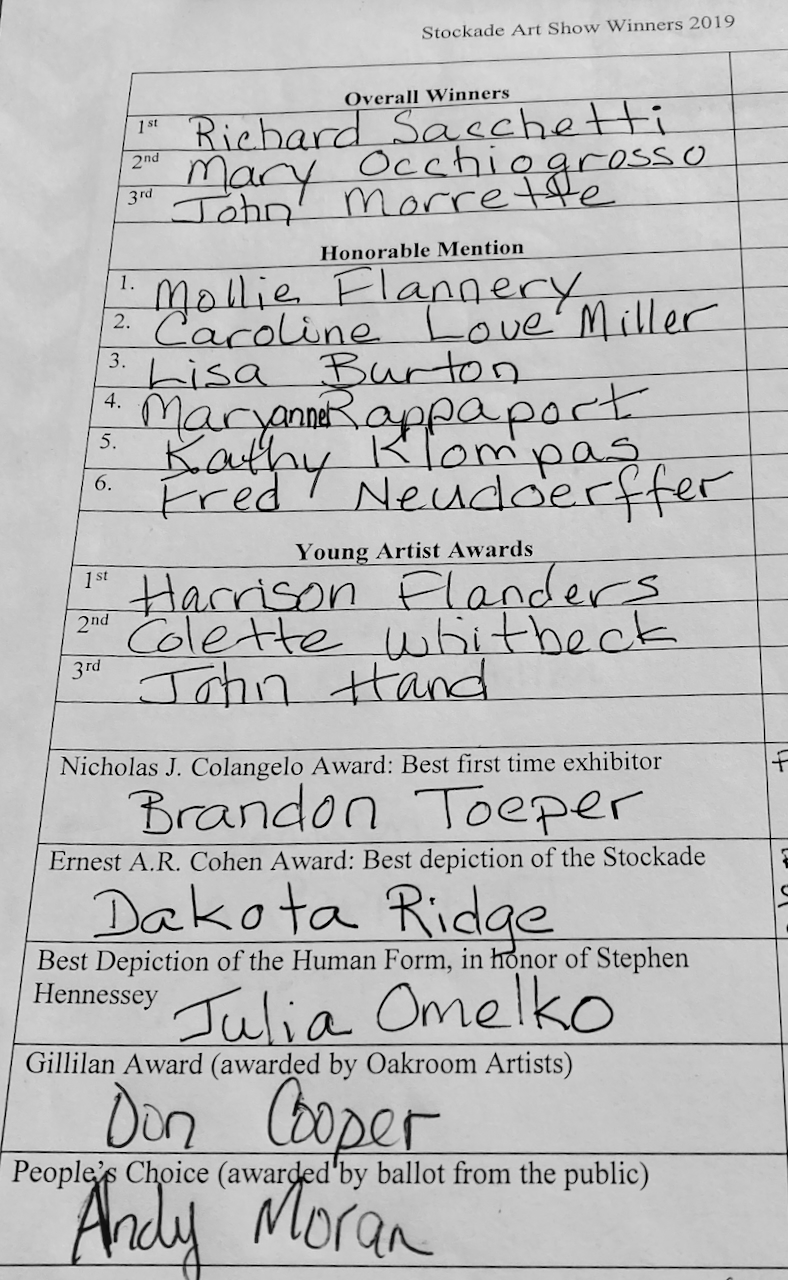 Stockade Art Show Winners 2019
Overall Winners
1st Richard Sacchetti
2nd Mary Occhiogrosso
3rd John Morrette
Honorable Mention
1. Mollie Flannery
2. Caroline Love Miller
3. Lisa Burton
4. Maryanne Rappaport
5. Kathy Klompas
6. Fred Neudoerffer
Young Artist Awards
1st Harrison Flanders
2nd Colette Whitbeck
3rd John Hand
Nicholas J. Colangelo Award: Best first time exhibitor
Brandon Toeper
Ernest A.R. Cohen Award: Best depiction of the Stockade
Dakota Ridge
Best Depiction of the Human Form, in honor of Stephen
Hennessey Julia Omelko
Gillilan Award (awarded by Oakroom Artists)
Don Cooper
People's Choice (awarded by ballot from the public)
Andy Moran